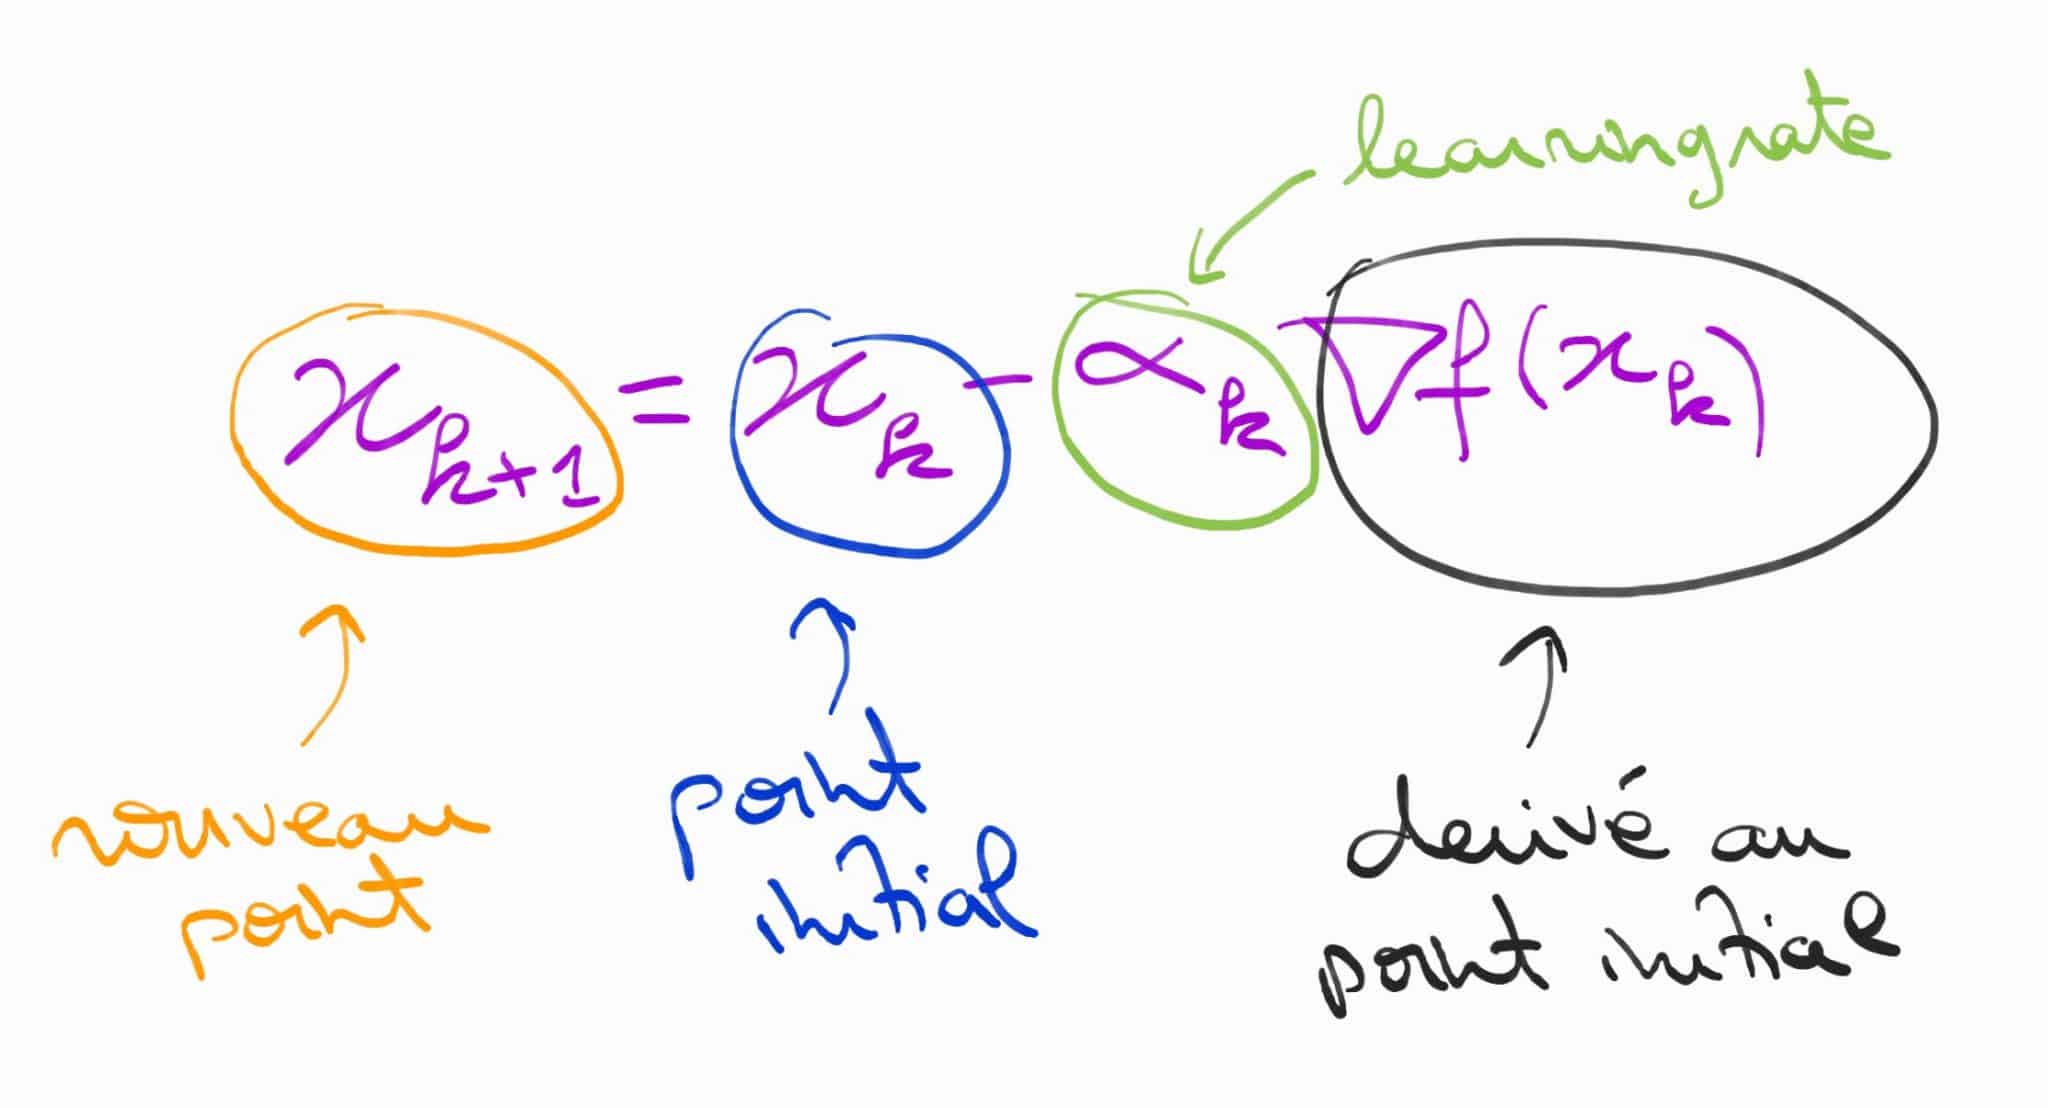 learning rate
x_{k+1} = x_k - α_k ∇f(x_k)
nouveau
point
point
initial
derivé au
point initial